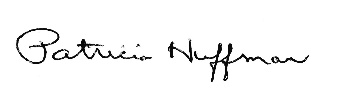 Patricia Huffman